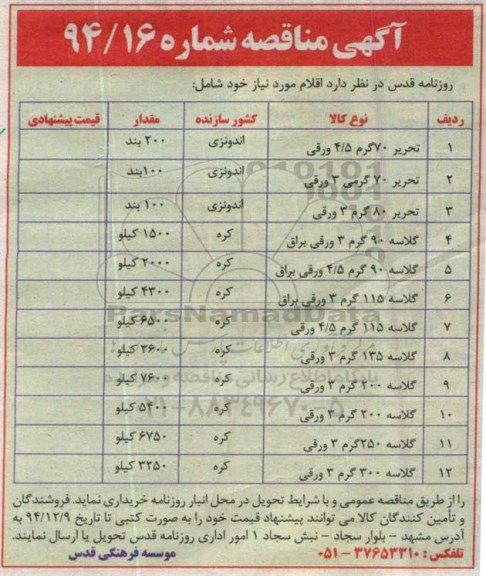 آگهی مناقصه شماره ۹۴/۱۶
روزنامه قدس در نظر دارد اقلام مورد نیاز خود شامل:
ردیف نوع کالا کشور سازنده مقدار قیمت پیشنهادی
۱ تحریر ۷۰گرم ۴/۵ ورقی اندونزی ۲۰۰ بند
۲ تحریر ۷۰ گرمی ۳ ورقی اندونزی ۱۰۰بند
۳ تحریر ۸۰ گرم ۳ ورقی اندونزی ۱۰۰ بند
۴ گلاسه ۹۰ گرم ۳ ورقی براق کره ۱۵۰۰ کیلو
۵ گلاسه ۹۰ گرم ۴/۵ ورقی براق کره ۲۰۰۰ کیلو
۶ گلاسه ۱۱۵ گرم ۳ ورقی براق کره ۴۳۰۰ کیلو
۷ گلاسه ۱۱۵ گرم ۴/۵ ورقی کره ۶۵۰۰ کیلو
۸ گلاسه ۱۳۵ گرم ۳ ورقی کره ۳۶۰۰ کیلو
۹ گلاسه ۲۰۰ گرم ۳ ورقی کره ۷۶۰۰ کیلو
۱۰ گلاسه ۲۰۰ گرم ۳ ورقی کره ۵۴۰۰ کیلو
۱۱ گلاسه ۲۵۰گرم ۳ ورقی کره ۶۷۵۰ کیلو
۱۲ گلاسه ۳۰۰ گرم ۳ ورقی کره ۳۲۵۰ کیلو
را از طریق مناقصه عمومی و با شرایط تحویل در محل انبار روزنامه خریداری نماید. فروشندگان
و تأمین کنندگان کالا می توانند پیشنهاد قیمت خود را به صورت کتبی تا تاریخ ۹۴/۱۲/۹ به
آدرس مشهد - بلوار سجاد - نبش سجاد ۱ امور اداری روزنامه قدس تحویل یا ارسال نمایند.
تلفکس: ۳۷۶۵۳۳۱۰ - ۰۵۱ موسسه فرهنگی قدس
ParsNamadData
پایگاه اطلاع رسانی مناقصه و مزایده
۰۲۱-۸۸۳۴۹۶۷۰-۵